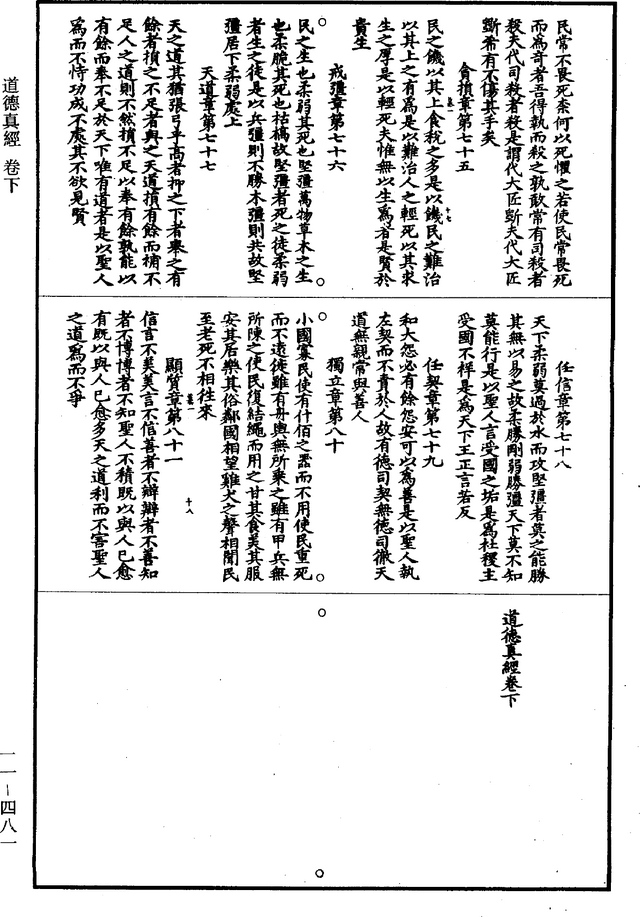 民常不畏死柰何以死懼之若使民常畏死
而為奇者吾得執而殺之孰敢常有司殺者
殺夫代司殺者殺是謂代大匠斲夫代大匠
斲希有不傷其手矣
貪損章第七十五
民之饑以其上食稅之多是以饑民之難治
以其上之有為是以難治人之輕死以其求
生之厚是以輕死夫惟無以生為者是賢於
貴生
戒彊章第七十六
民之生也柔弱其死也堅彊萬物草木之生
也柔脆其死也枯槁故堅彊者死之徒柔弱
者生之徒是以兵彊則不勝木彊則共故堅
彊居下柔弱處上
天道章第七十七
天之道其猶張弓乎高者抑之下者舉之有
餘者損之不足者與之天道損有餘而補不
足人之道則不然損不足以奉有餘孰能以
有餘而奉不足於天下唯有道者是以聖人
為而不恃功成不處其不欲見賢
任信章第七十八
天下柔弱莫過於水而攻堅彊者莫之能勝
其無以易之故柔勝剛弱勝彊天下莫不知
莫能行是以聖人言受國之垢是為社稷主
受國不祥是為天下王正言若反
任契章第七十九
和大怨必有餘怨安可以為善是以聖人執
左契而不責於人故有德司契無德司徹天
道無親常與善人
獨立章第八十
小國寡民使有什佰之器而不用使民重死
而不遠徙雖有舟輿無所乘之雖有甲兵無
所陳之使民復結繩而用之甘其食美其服
安其居樂其俗鄰國相望雞犬之聲相聞民
至老死不相往來
顯質章第八十一
信言不美美言不信善者不辯辯者不善知
者不博博者不知聖人不積既以與人己愈
有既以與人己愈多天之道利而不害聖人
之道為而不爭
道德真經卷下
道德真經 卷下
一一－四八一